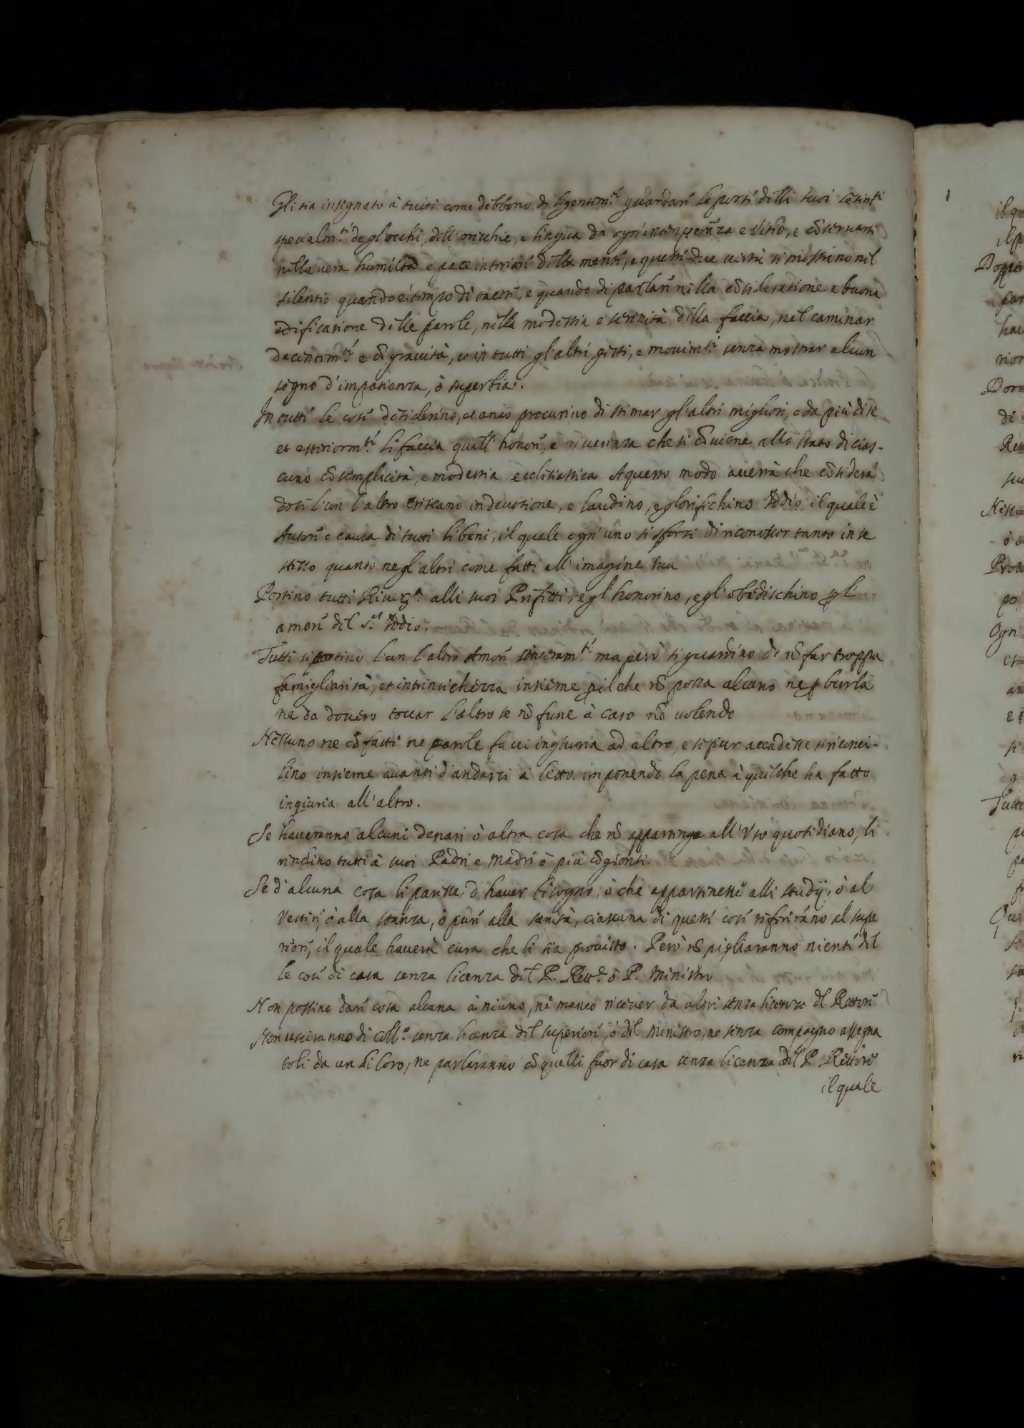 Gli sia insegnato à tutti come debbono diligentem.te guardar le porte delli suoi sentim.ti
specialm.te degl'occhi, dell'orecchie, e lingua da ogni intemperãza e vitio, e cõservarsi
nella vera humiltà e pace interiore della mente, e queste due virtù si mostrino nel
silentio quando è tempo di tacere, e quando di parlare nella cõsideratione e buona
edificatione delle parole, nella modestia e serenità della faccia, nel caminar
decentem.te e cõ gravità, et in tutti gl'altri gesti, e movim.ti senza mostrar alcun
segno d'impatienza, ò superbia.
In tutte le cose desiderino, et anco procurino di stimar gl'altri migliori, e da più di se
et esteriorm.te li faccia quell'honore, e riverenza che si cõviene allo stato di cias-
cuno cõ semplicità, e modestia ecclesiastica. A questo modo averrà che cõsiderã
dosi l'un l'altro crescano in devotione, e laudino, e glorifichino Iddio, il quale è
Autore e causa di tutti li beni, il quale ogn'uno si sforzi di riconoscer tanto in se
stesso quanto negl'altri come fatti all'imagine sua
Portino tutti River.za alli suoi Prefetti, e gl'honorino, e gl'obedischino p l
amore del S.r Iddio.
Tutti si portino l'un l'altro Amore sinceram.te ma però si guardino di nõ far troppa
famigliarità, et intrinsichezza insieme, p il che nõ possa alcuno ne p burla
ne da dovero toccar l'altro se nõ fune à caso nõ volendo
Nessuno ne cõ fatti ne parole facci ingiuria ad altro, e se pur accadesse si riconci-
lino insieme avanti d'andarsi à letto imponendo la pena à quel che ha fatto
ingiuria all'altro.
Se haveranno alcuni denari ò altra cosa che nõ appartenga all'Uso quotidiano, li
rendino tutti à suoi Padri e Madri ò più cõgionti.
Se d'alcuna cosa li paresse d'haver bisogno, ò che appartenesse alli studij, ò al
Vestir, ò alla stanza, ò pure alla sanità, ciascuna di queste cose riferirãno al supe
riore, il quale haverà cura che li sia provisto. Però nõ pigliaranno niente del
le cose di casa senza licenza del P. Rett.re ò P. Ministro
Non possino dare cosa alcuna à niuno, ne manco ricever da altri senza licenza del Rettore
Non usciranno di Coll.o senza licenza del superiore, ò del Ministro, ne senza compagno assegna
toli da un di loro, ne parleranno cõ quelli fuor di casa senza licenza del P. Rettore
il quale